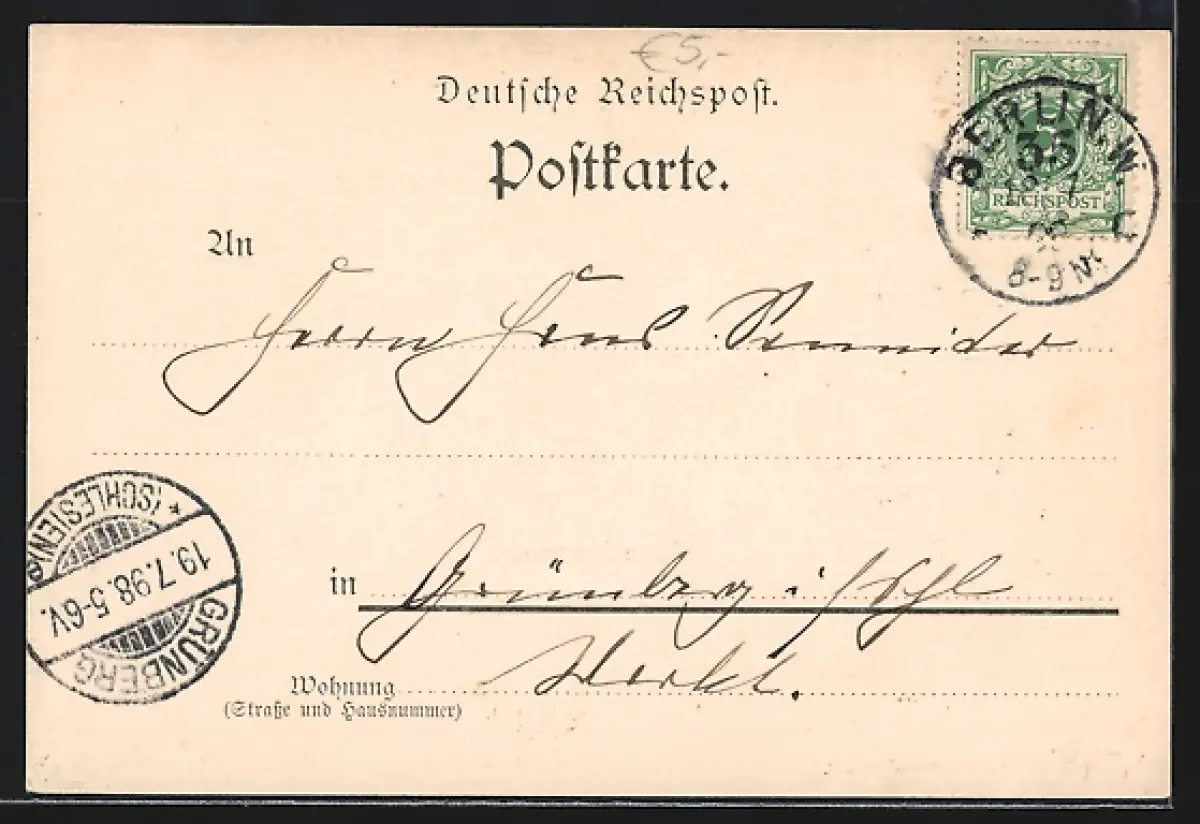 €5,-
Deutsche Reichspost.
Postkarte.
BERLIN, W.
35
8-9 N.
REICHSPOST
An
Herrn Hans
in Grünberg i/Schl
Markt.
Wohnung
(Straße und Hausnummer)
* (SCHLESIEN) e
19.7.98.5-6V.
GRÜNBERG